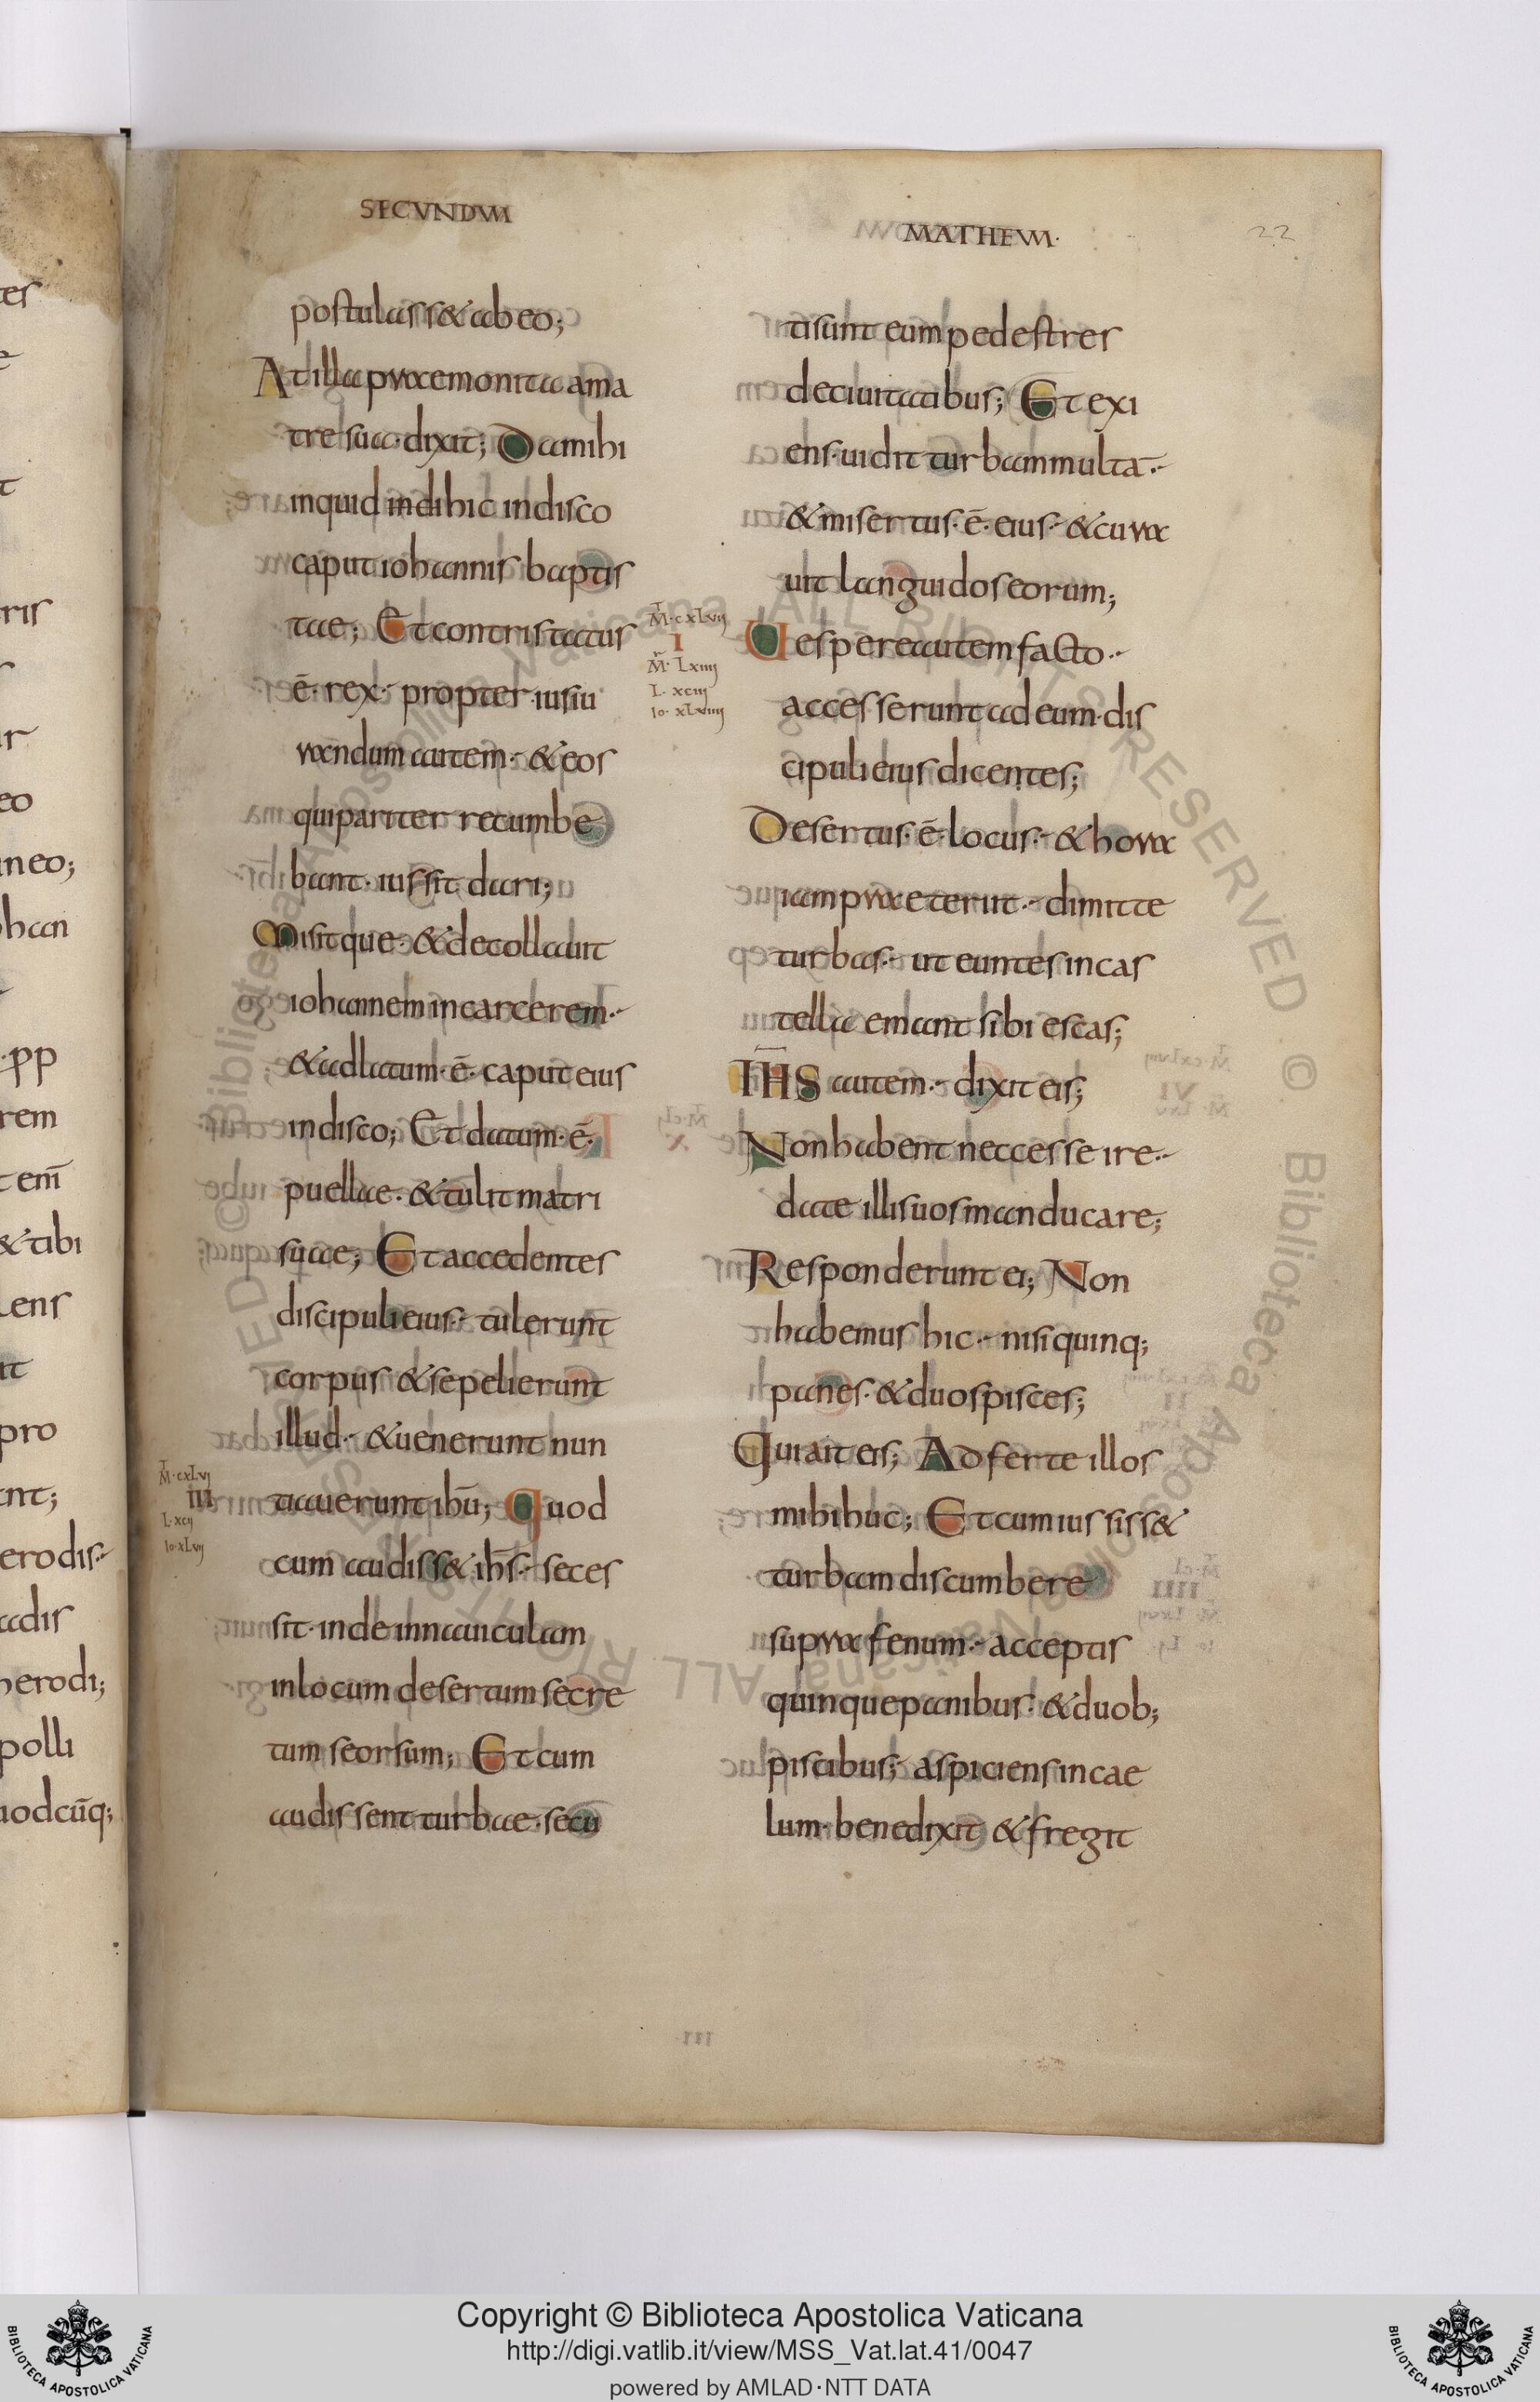 SECVNDUM
MATHEUM·
22
postulass& ab eo;
At illa praemonita a ma
tre sua· dixit; Da mihi
inquid indi hic in disco
caput iohannis baptis
tae; Et contristatus
ē· rex· propter iusiu
randum autem· & eos
qui pariter recumbe
bant· iussit dari;
Misitque· & decollauit
iohannem in carcerem·
& adlatum· ē· caput eius
in disco; Et datum· ē·
puellae· & tulit matri
suae; Et accedentes
discipuli eius· tulerunt
corpus & sepelierunt
illud· & uenerunt nun
M̄· cxlvi
iii
L· xcii
Io· xlvii
tiauerunt ihū; Quod
cum audiss& ihs̄· seces
sit· inde inn auiculam
in locum desertum secre
tum seorsum; Et cum
audissent turbae· secu
tisunt eum pedestres
de ciuitatibus; Et exi
ens· uidit turbam multā·
& misertus· ē· eius· & cura
uit languidos eorum;
M̄· cxlvii
I
M̄· Lxiiii
L· xciii
Io· xLviiii
Uespere autem facto·
accesserunt ad eum· dis
cipuli eius dicentes;
Desertus· ē· locus· & hora
iam praeteriit· dimitte
turbas· ut euntes in cas
tella emant sibi escas;
IH̄S autem· dixit eis;
Non habent neccesse ire·
date illis uos manducare;
Responderunt ei; Non
habemus hic· nisi quinq;
panes· & duos pisces;
Qui ait eis; Adferte illos
mihi huc; Et cum iussiss&
turbam discumbere
supra fenum· acceptis
quinque panibus· & duob;
piscibus; aspiciens in cae
lum· benedixit & fregit
Copyright © Biblioteca Apostolica Vaticana
http://digi.vatlib.it/view/MSS_Vat.lat.41/0047
powered by AMLAD·NTT DATA
BIBLIOTECA APOSTOLICA VATICANA
BIBLIOTECA APOSTOLICA VATICANA